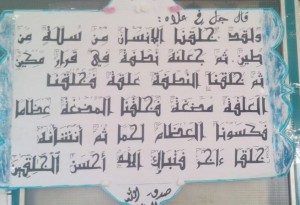 قال جل في علاه :
ولقد خلقنا الإنسان من سلالة من
طين ثم جعلنة نطفة في قرار مكين
ثم خلقنا النطفة علقة فخلقنا
العلقة مضغة فخلقنا المضغة عظاما
فكسونا العظام لحما ثم انشانه
خلقا ءاخر فتبارك الله أحسن الخلقين
صدق الله